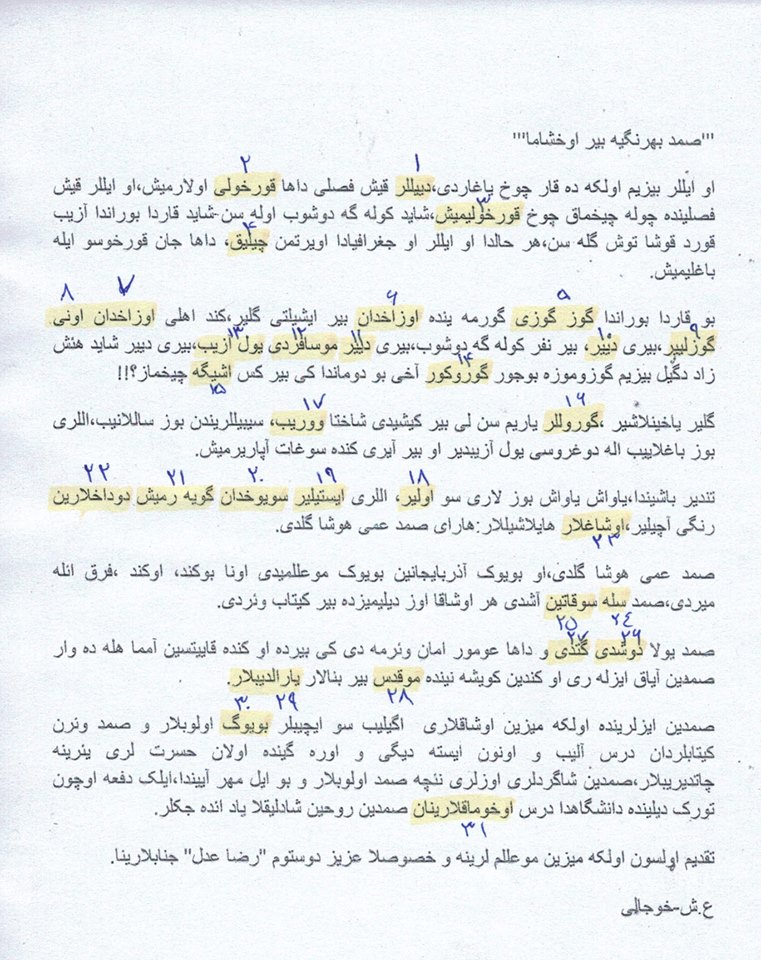 "'صمد بهرنگیه بیر اوخشاما"'
۱ ۲
او ایللر بیزیم اولکه ده قار چوخ یاغاردی،دییللر قیش فصلی داها قورخولی اولارمیش،او ایللر قیش
۳
فصلینده چوله چیخماق چوخ قورخولیمیش،شاید کوله گه دوشوب اوله سن-شاید قاردا بوراندا آزیب
۴
قورد قوشا توش گله سن،هر حالدا او ایللر او جغرافیادا اویرتمن چیلیق، داها جان قورخوسو ایله
باغلیمیش.
۵ ۶ ۷ ۸
بو قاردا بوراندا گوز گوزی گورمه ینده اوزاخدان بیر ایشیلتی گلیر،کند اهلی اوزاخدان اونی
۹ ۱۰ ۱۱ ۱۲ ۱۳
گوزلییر،بیری دییر، بیر نفر کوله گه دوشوب،بیری دییر موسافردی یول آزیب،بیری دییر شاید هئش
۱۴
زاد دگیل بیزیم گوزوموزه بوجور گوزوکور آخی بو دوماندا کی بیر کس اشیگه چیخماز؟!!
۱۵
۱۶ ۱۷
گلیر یاخینلاشیر ،گوروللر یاریم سن لی بیر کیشیدی شاختا ووریب، سیبیللریندن بوز ساللانیب،اللری
بوز باغلاییب اله دوغروسی یول آزیبدیر او بیر آیری کنده سوغات آپاریرمیش.
۱۸ ۱۹ ۲۰ ۲۱ ۲۲
تندیر باشیندا،یاواش یاواش بوز لاری سو اولیر، اللری ایستیلیر سویوخدان گویه رمیش دوداخلارین
رنگی آچیلیر،اوشاغلار هایلاشیللار:هارای صمد عمی هوشا گلدی.
۲۳
صمد عمی هوشا گلدی،او بویوک آذربایجانین بویوک موعللمیدی اونا بوکند، اوکند ،فرق ائله
میردی،صمد سله سوقاتین آشدی هر اوشاقا اوز دیلیمیزده بیر کیتاب وئردی.
۲۴ ۲۵
۲۶ ۲۷
صمد یولا دوشدی گئدی و داها عومور امان وئرمه دی کی بیرده او کنده قاییتسین آمما هله ده وار
صمدین آیاق ایزله ری او کندین کویشه نینده موقدس بیر بنالار یارالدیبلار.
۲۸ ۲۹ ۳۰
صمدین ایزلرینده اولکه میزین اوشاقلاری اگیلیب سو ایچیبلر بویوگ اولوبلار و صمد وئرن
کیتابلردان درس آلیب و اونون ایسته دیگی و اوره گینده اولان حسرت لری یئرینه
چاتدیریبلار،صمدین شاگردلری اوزلری نئچه صمد اولوبلار و بو ایل مهر آییندا،ایلک دفعه اوچون
تورک دیلینده دانشگاهدا درس اوخوماقلارینان صمدین روحین شادلیقلا یاد ائده جکلر.
۳۱
تقدیم اولسون اولکه میزین موعللم لرینه و خصوصلا عزیز دوستوم "رضا عدل" جنابلارینا.
ع.ش-خوجالی